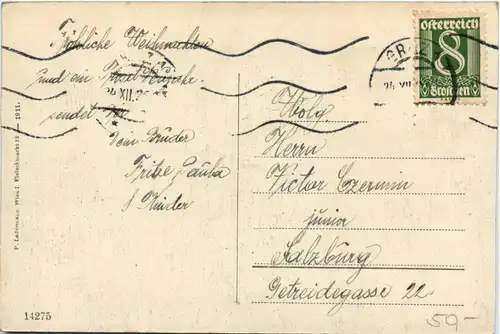 Fröhliche Weihnachten
und ein Neujahr.
sendet Dir
dein Bruder
Fritz
Kinder
P. Ledermann, Wien I. Fleischmarkt 12 — 1911.
14275
Österreich
8
Groschen
GRA
24 XII
24. XII. 2
Herrn
Victor Czermin
junior
Salzburg
Getreidegasse 22
50.–